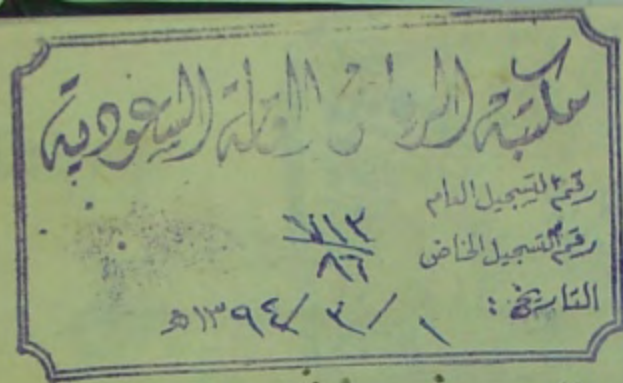 مكتبة الرياض العامة السعودية
رقم التسجيل العام
رقم التسجيل الخاص ٨٦
التاريخ : ١ / ٣ / ١٣٩٤ه